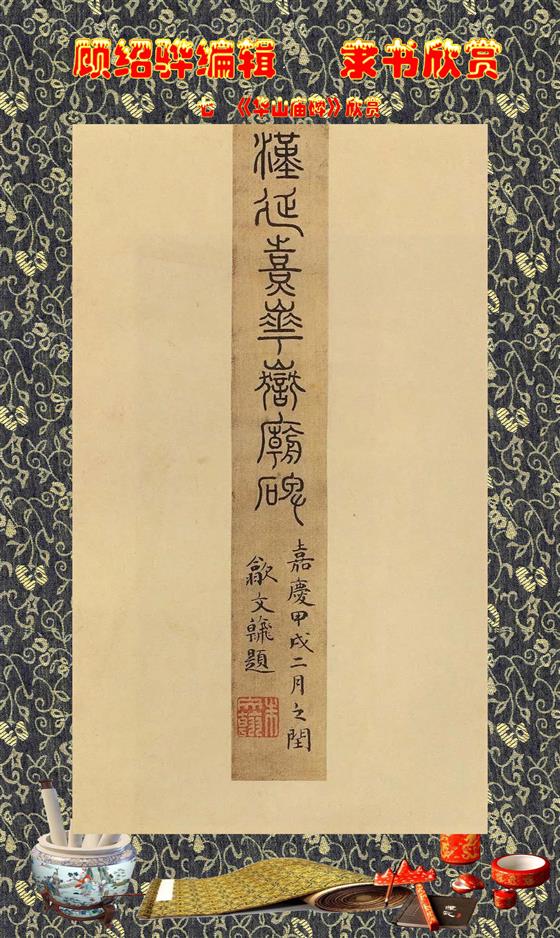 顾绍骅编辑 隶书欣赏
心 《华山庙碑》欣赏
漢延熹華嶽廟碑
嘉慶甲戌二月之閏
歙文翰題